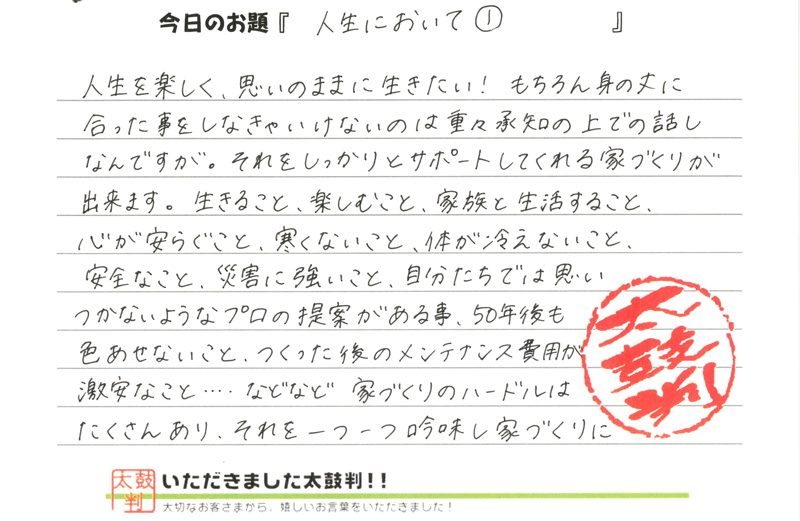 今日のお題『 人生において① 』
人生を楽しく、思いのままに生きたい! もちろん身の丈に
合った事をしなきゃいけないのは重々承知の上での話し
なんですが。それをしっかりとサポートしてくれる家づくりが
出来ます。生きること、楽しむこと、家族と生活すること、
心が安らぐこと、寒くないこと、体が冷えないこと、
安全なこと、災害に強いこと、自分たちでは思い
つかないようなプロの提案がある事、50年後も
色あせないこと、つくった後のメンテナンス費用が
激安なこと‥‥などなど 家づくりのハードルは
たくさんあり、それを一つ一つ吟味し家づくりに
太鼓判
太鼓判
いただきました太鼓判!!
大切なお客さまから、嬉しいお言葉をいただきました!